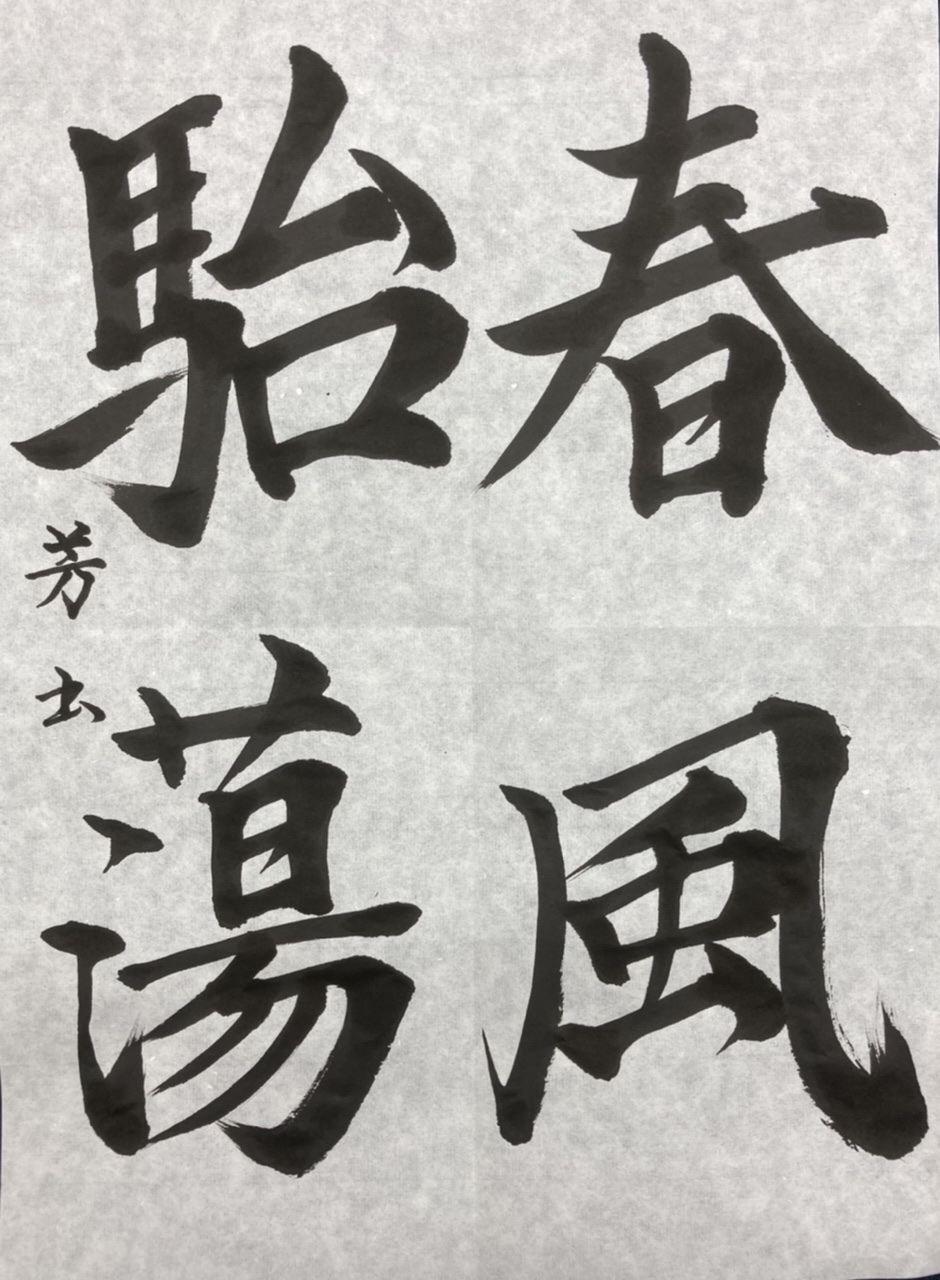 春風
駘蕩
芳出